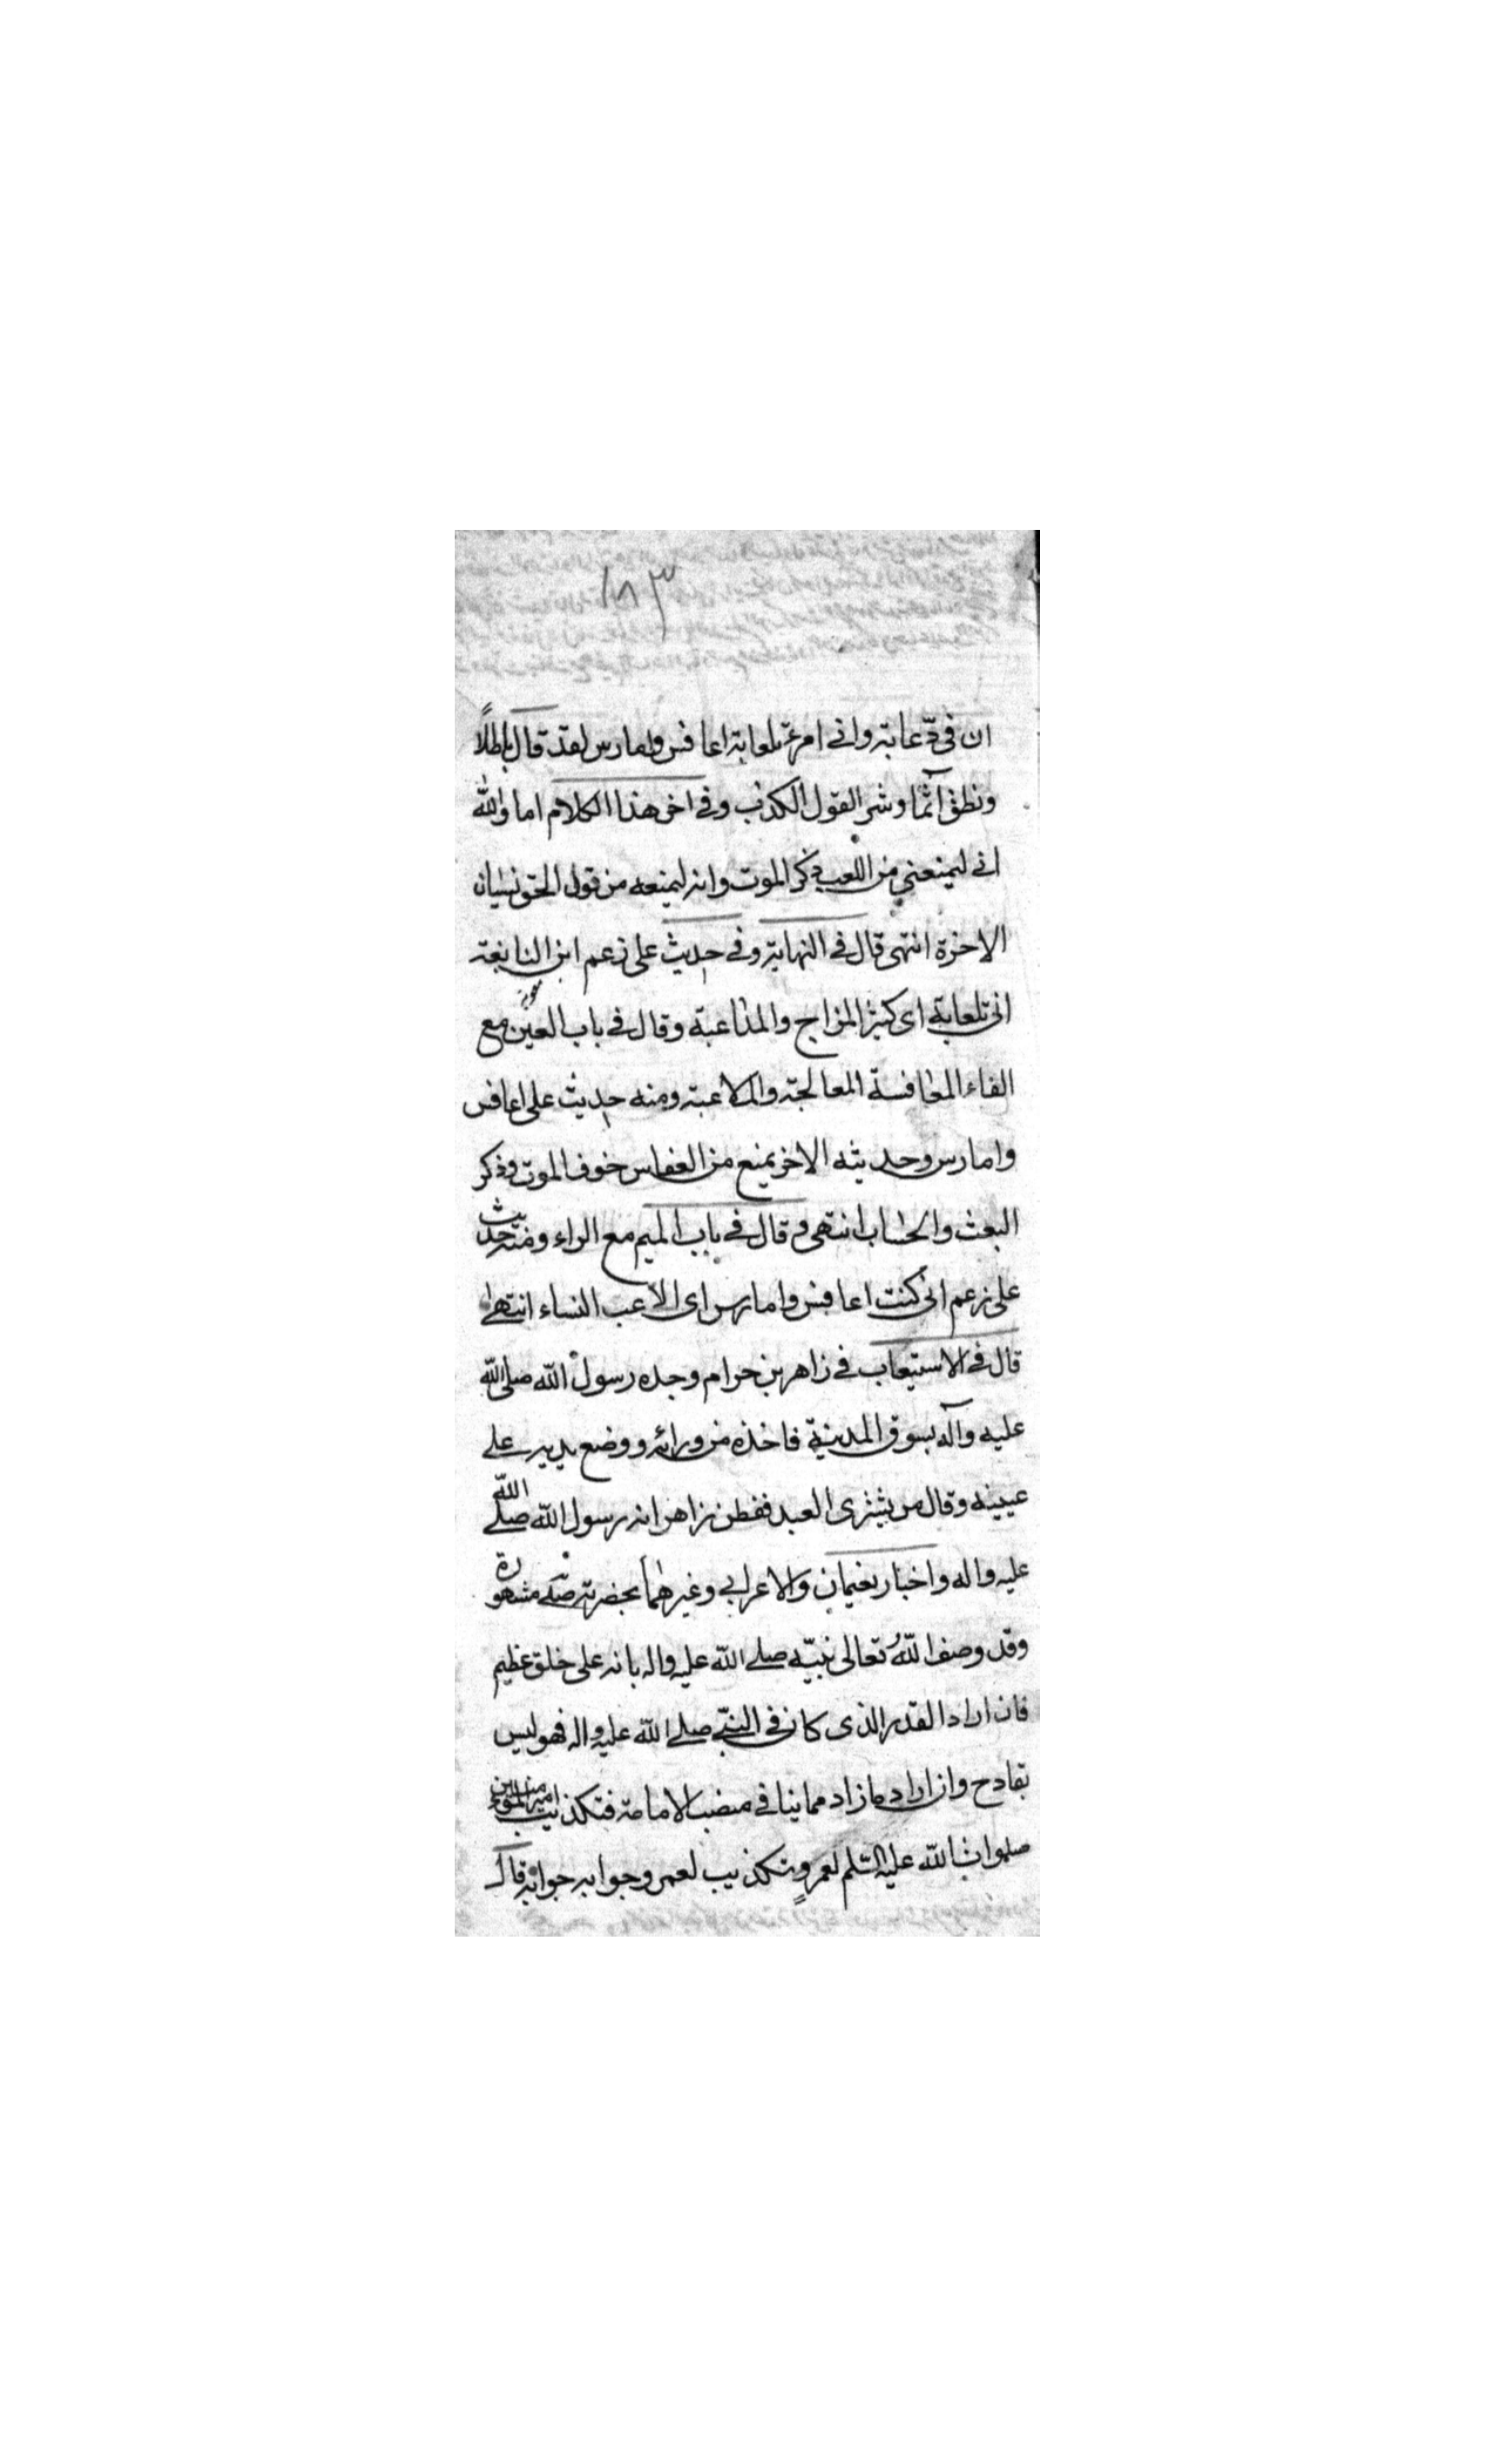 ١٨٣
ان في دعابة واني امرء تلعابة اعافس وامارس لقد قال باطلاً
ونطق آثما وشر القول الكذب وفي اخر هذا الكلام اما والله
اني ليمنعني من اللعب ذكر الموت وانه ليمنعه من قول الحق نسيان
الاخرة انتهى قال في النهاية وفي حديث علي زعم ابن النابغة
اني تلعابة اى كثير المزاح والمداعبة وقال في باب العين مع
الفاء المعافسة المعالجة والملاعبة ومنه حديث علي اعافس
وامارس وحديثه الاخر يمنع من العفاس خوف الموت وذكر
البعث والحساب انتهى وقال في باب الميم مع الراء ومنه حديث
علي زعم اني كنت اعافس وامارس اى الاعب النساء انتهى
قال في الاستيعاب في زاهر بن حرام وجده رسول الله صلى الله
عليه وآله بسوق المدينة فاخذه من ورائه ووضع يديه على
عينيه وقال من يشترى العبد ففطن زاهر انه رسول الله صلى الله
عليه واله واخبار نعيمان والاعرابي وغيرهما بحضرته صلى مشهورة
وقد وصف اللهُ تعالى نبيّه صلى الله عليه واله بانه على خلق عظيم
فان اراد القدر الذى كان في النبيّ صلى الله عليه واله فهو ليس
بقادح وان اراد ما زاد مما ينافي منصب الامامة فتكذيب امير المؤمنين
صلوات الله عليه السّلم لعمرو تكذيب لعمر وجوابه جوابه قال